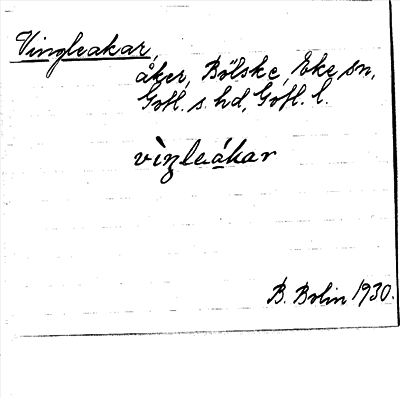 Vingleakar,
åker, Bölske, Eke sn,
Gotl. s. hd, Gotl. l.
vìŋleákar
B. Bolin 1930.